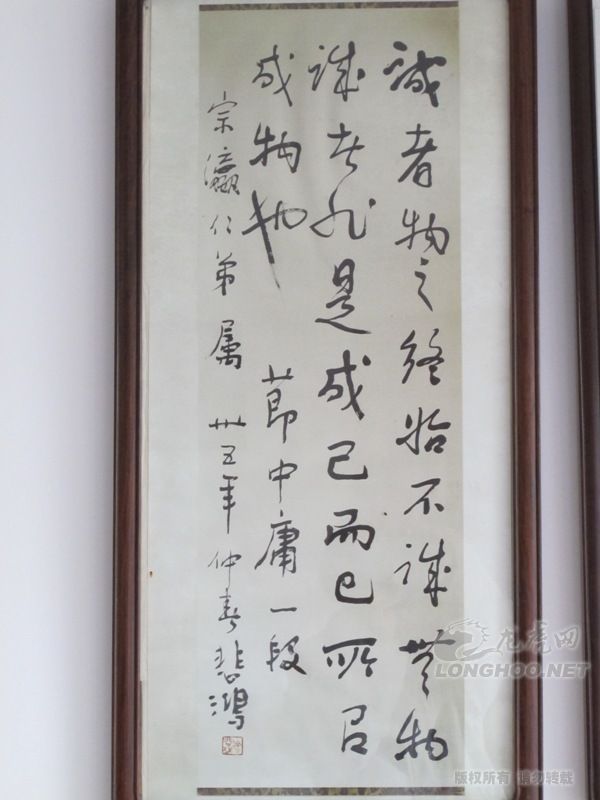 誠者物之終始不誠無物
誠者非是成己而已所㠯
成物也 節中庸一段
宗瀛仁弟属 卅五年仲春悲鴻
龙虎网
LONGHOO.NET
版权所有 请勿转载